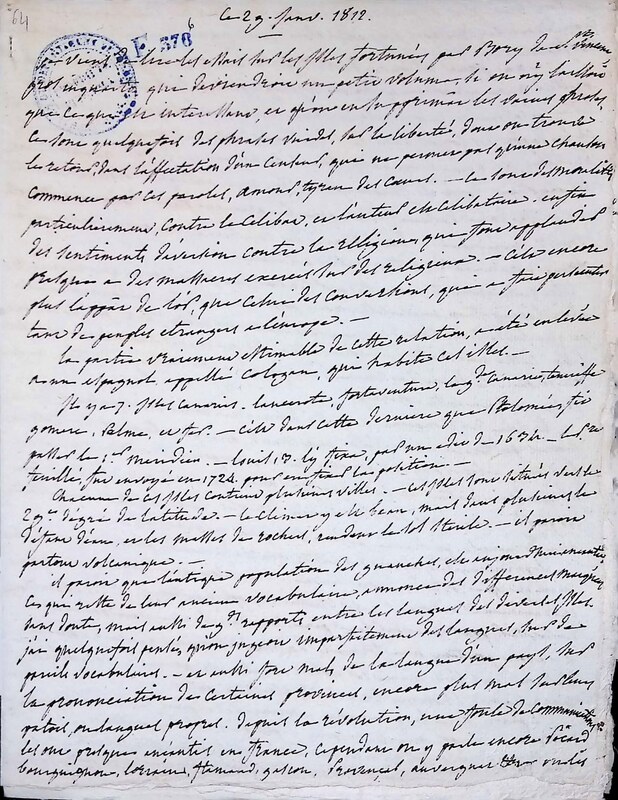 64
6
ce 29. Janv. 1812.
F 376
je viens de lire les essais sur les Isles fortunées par Bory de St. Vincent
gros in quarto, qui deviendroit un petit volume, si on n'y laissoit
que ce qui est interessant, et qu'on en supprimat les vaines phrases.
ce sont quelquefois des phrases vuides, sur la liberté, dont on trouve
le retour, dans l'affectation d'un Censeur, qui ne permet pas qu'une chanson
commence par ces paroles, amour, tyran des Cœurs. — ce sont des moralités
particulierement, contre le celibat, et l'auteur est celibataire. enfin
des sentiments d'aversion contre la religion, qui font applaudir
presque a des massacres exercés sur des religieux. — C'est encore
plus l'appât de l'or, que celui des conversions, qui a fait persecuter
tant de peuples etrangers a l'europe. —
la partie vraiment estimable de cette relation, a été enlevée
a un espagnol, appellé Cologan, qui habite ces isles. —
Il y a 7. Isles Canaries. lancerote, fortaventure, la gde. Canarie, teneriffe
gomere, Palme, et fer. — C'est dans cette derniere que Ptolomée, fit
passer le 1er. meridien. — louis 13. l'y fixa, par un edit de 1634. — le P.
feuillé, fut envoyé en 1724. pour en fixer la position. —
Chacune de ces Isles contient plusieurs villes. — ces Isles sont situées vers le
29me. dégré de latitude. — le climat y est beau, mais dans plusieurs le
défaut d'eau, et les masses de rochers, rendent le sol sterile. — il paroit
partout volcanique. —
il paroit que l'antique population des guanches, est aujourd'hui
ce qui reste de leur ancien vocabulaire, annonce des differences marquées
sans doute, mais aussi de gds. rapports entre les langues des diverses Isles.
j'ai quelquefois pensé, qu'on jugeoit imparfaitement des langues, sur de
pareils vocabulaires. — et aussi fort mal, de la langue d'un pays, sur
la prononciation de certaines provinces, encore plus mal sur leurs
patois, ou langues propres. depuis la révolution, une foule de communications
les ont presque anéantis en france, cependant on y parle encore Picard
bourguignon, lorrain, flamand, gascon, Provençal, auvergnat